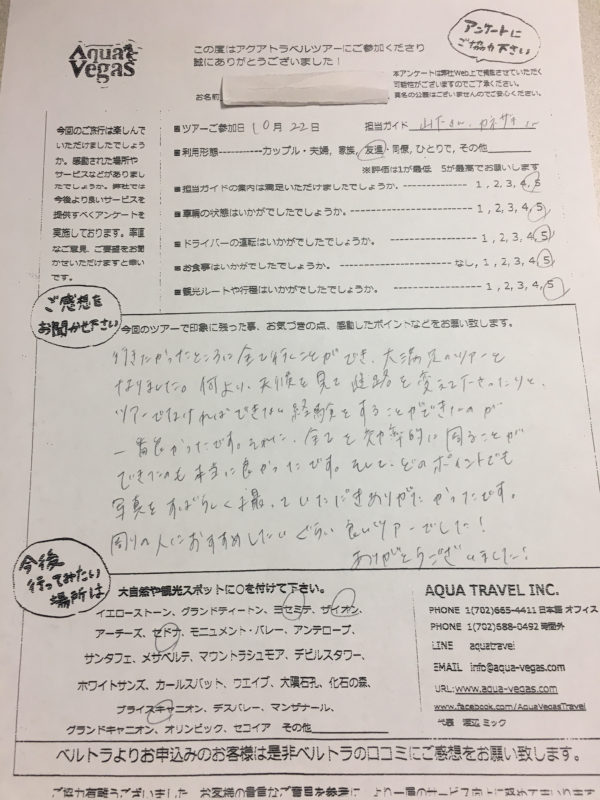 Aqua Vegas
この度はアクアトラベルツアーにご参加くださり
誠にありがとうございました！
アンケートに
ご協力下さい
お名前
本アンケートは弊社Web上で掲載させていただく
可能性がございますのでご了承ください。
真名の公表はございませんのでご安心ください。
今回のご旅行は楽しんで
いただけましたでしょう
か。感動された場所や
サービスなどがありまし
たでしょうか。弊社では
今後より良いサービスを
提供すべくアンケートを
実施しております。率直
なご意見、ご要望をお聞
かせいただけますと幸い
です。
■ツアーご参加日 10月 22日 担当ガイド
■利用形態----------カップル・夫婦, 家族, 友達・同僚, ひとりで, その他
※評価は1が最低 5が最高でお願いします
■担当ガイドの案内は満足いただけましたでしょうか。 ---------------- 1, 2, 3, 4, 5
■車輌の状態はいかがでしたでしょうか。 ---------------- 1, 2, 3, 4, 5
■ドライバーの運転はいかがでしたでしょうか。 ---------------- 1, 2, 3, 4, 5
■お食事はいかがでしたでしょうか。 ---------------- なし, 1, 2, 3, 4, 5
■観光ルートや行程はいかがでしたでしょうか。 ---------------- 1, 2, 3, 4, 5
ご感想を
お聞かせ下さい
今回のツアーで印象に残った事、お気づきの点、感動したポイントなどをお願い致します。
行きたかったところに全て行くことができ、大満足のツアーと
なりました。何より、天候を見て進路を変えて下さったりと、
ツアーでなければできない経験をすることができたのが
一番良かったです。それに、全てを効率的に周ることが
できたのも本当に良かったです。そして、どのポイントでも
写真をすばらしく撮っていただきありがたかったです。
周りの人におすすめしたいぐらい良いツアーでした！
ありがとうございました！
今後
行ってみたい
場所は
大自然や観光スポットに○を付けて下さい。
イエローストーン、グランドティートン、ヨセミテ、ザイオン、
アーチーズ、セドナ、モニュメント・バレー、アンテロープ、
サンタフェ、メサベルデ、マウントラシュモア、デビルスタワー、
ホワイトサンズ、カールスバット、ウエイブ、大隕石孔、化石の森、
ブライスキャニオン、デスバレー、マンザナール、
グランドキャニオン、オリンピック、セコイア その他
AQUA TRAVEL INC.
PHONE 1(702)665-4411 日本語 オフィス
PHONE 1(702)688-0492 時間外
LINE aquatravel
EMAIL info@aqua-vegas.com
URL:www.aqua-vegas.com
www.facebook.com/AquaVegasTravel
代表 渡辺 ミック
ベルトラよりお申込みのお客様は是非ベルトラの口コミにご感想をお願い致します。